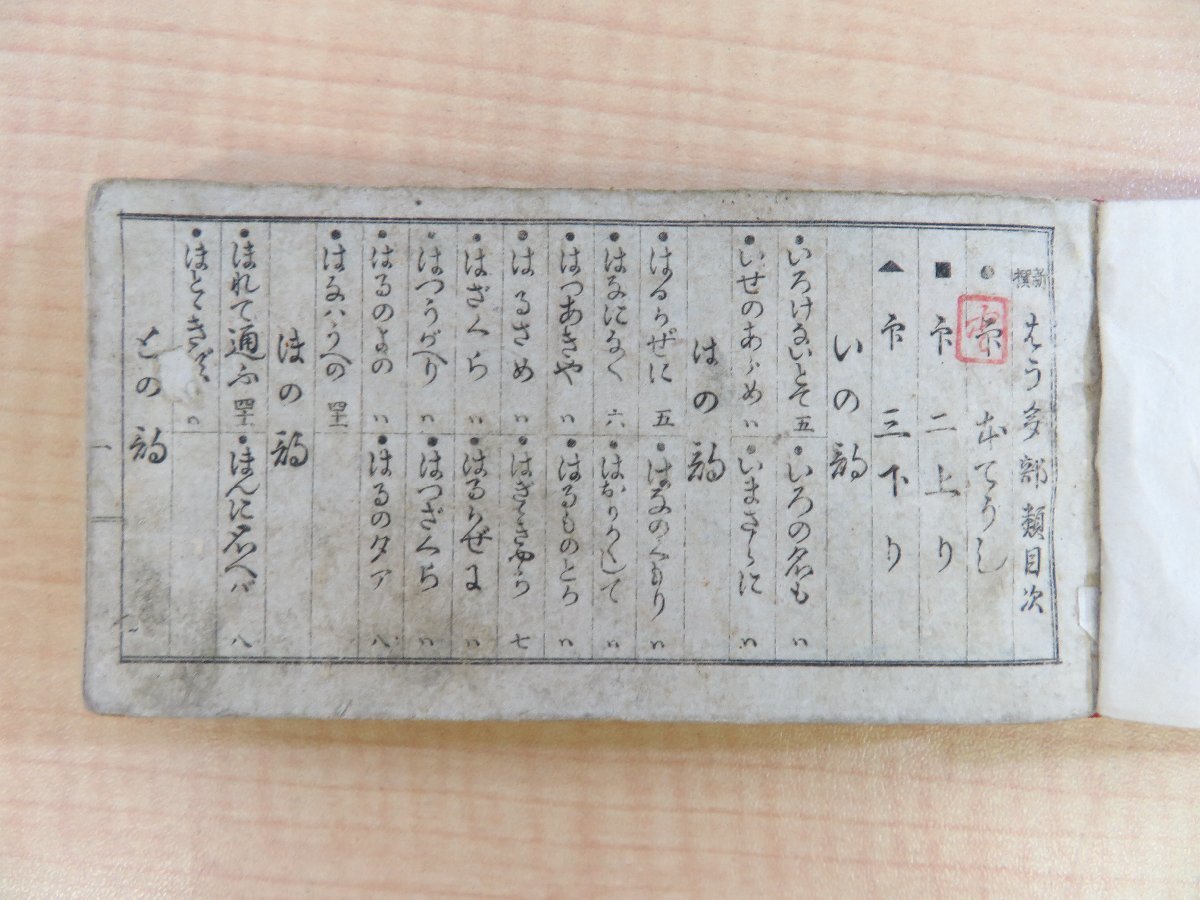 新撰 はうた部類目次
● 印 本てうし
■ 印 二上り
▲ 印 三下り
いの部
●いろけないとて 五 ●いろの名も 〃
●いせのあらめ 〃 ●いまさらに 〃
はの部
●はるかぜに 五 ●はなのくもり 〃
●はなになく 六 ●はおりかくして 〃
●はつあきや 〃 ●はるものとり 〃
●はるさめ 〃 七
●はぎくち 〃 ●はるかぜに 〃
●はつうがへり 〃 ●はつざくら 〃
●はるのよの 〃 ●はるの夕ア 八
●はなハうへの 四十
ほの部
●ほれて通ふ 四十 ●ほんに名へバ 八
ほとゝぎす 〃
との部
一